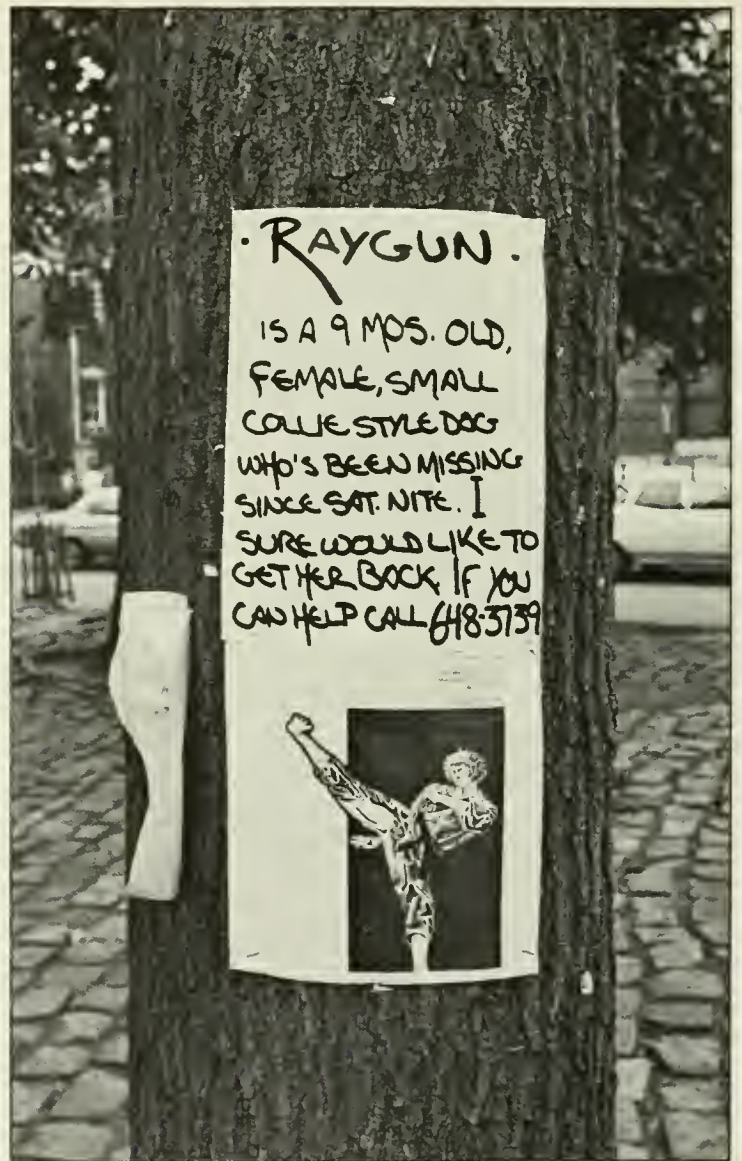 · RAYGUN ·
IS A 9 MOS. OLD,
FEMALE, SMALL
COLLIE STYLE DOG
WHO'S BEEN MISSING
SINCE SAT. NITE. I
SURE WOULD LIKE TO
GET HER BACK. IF YOU
CAN HELP CALL 648-3739